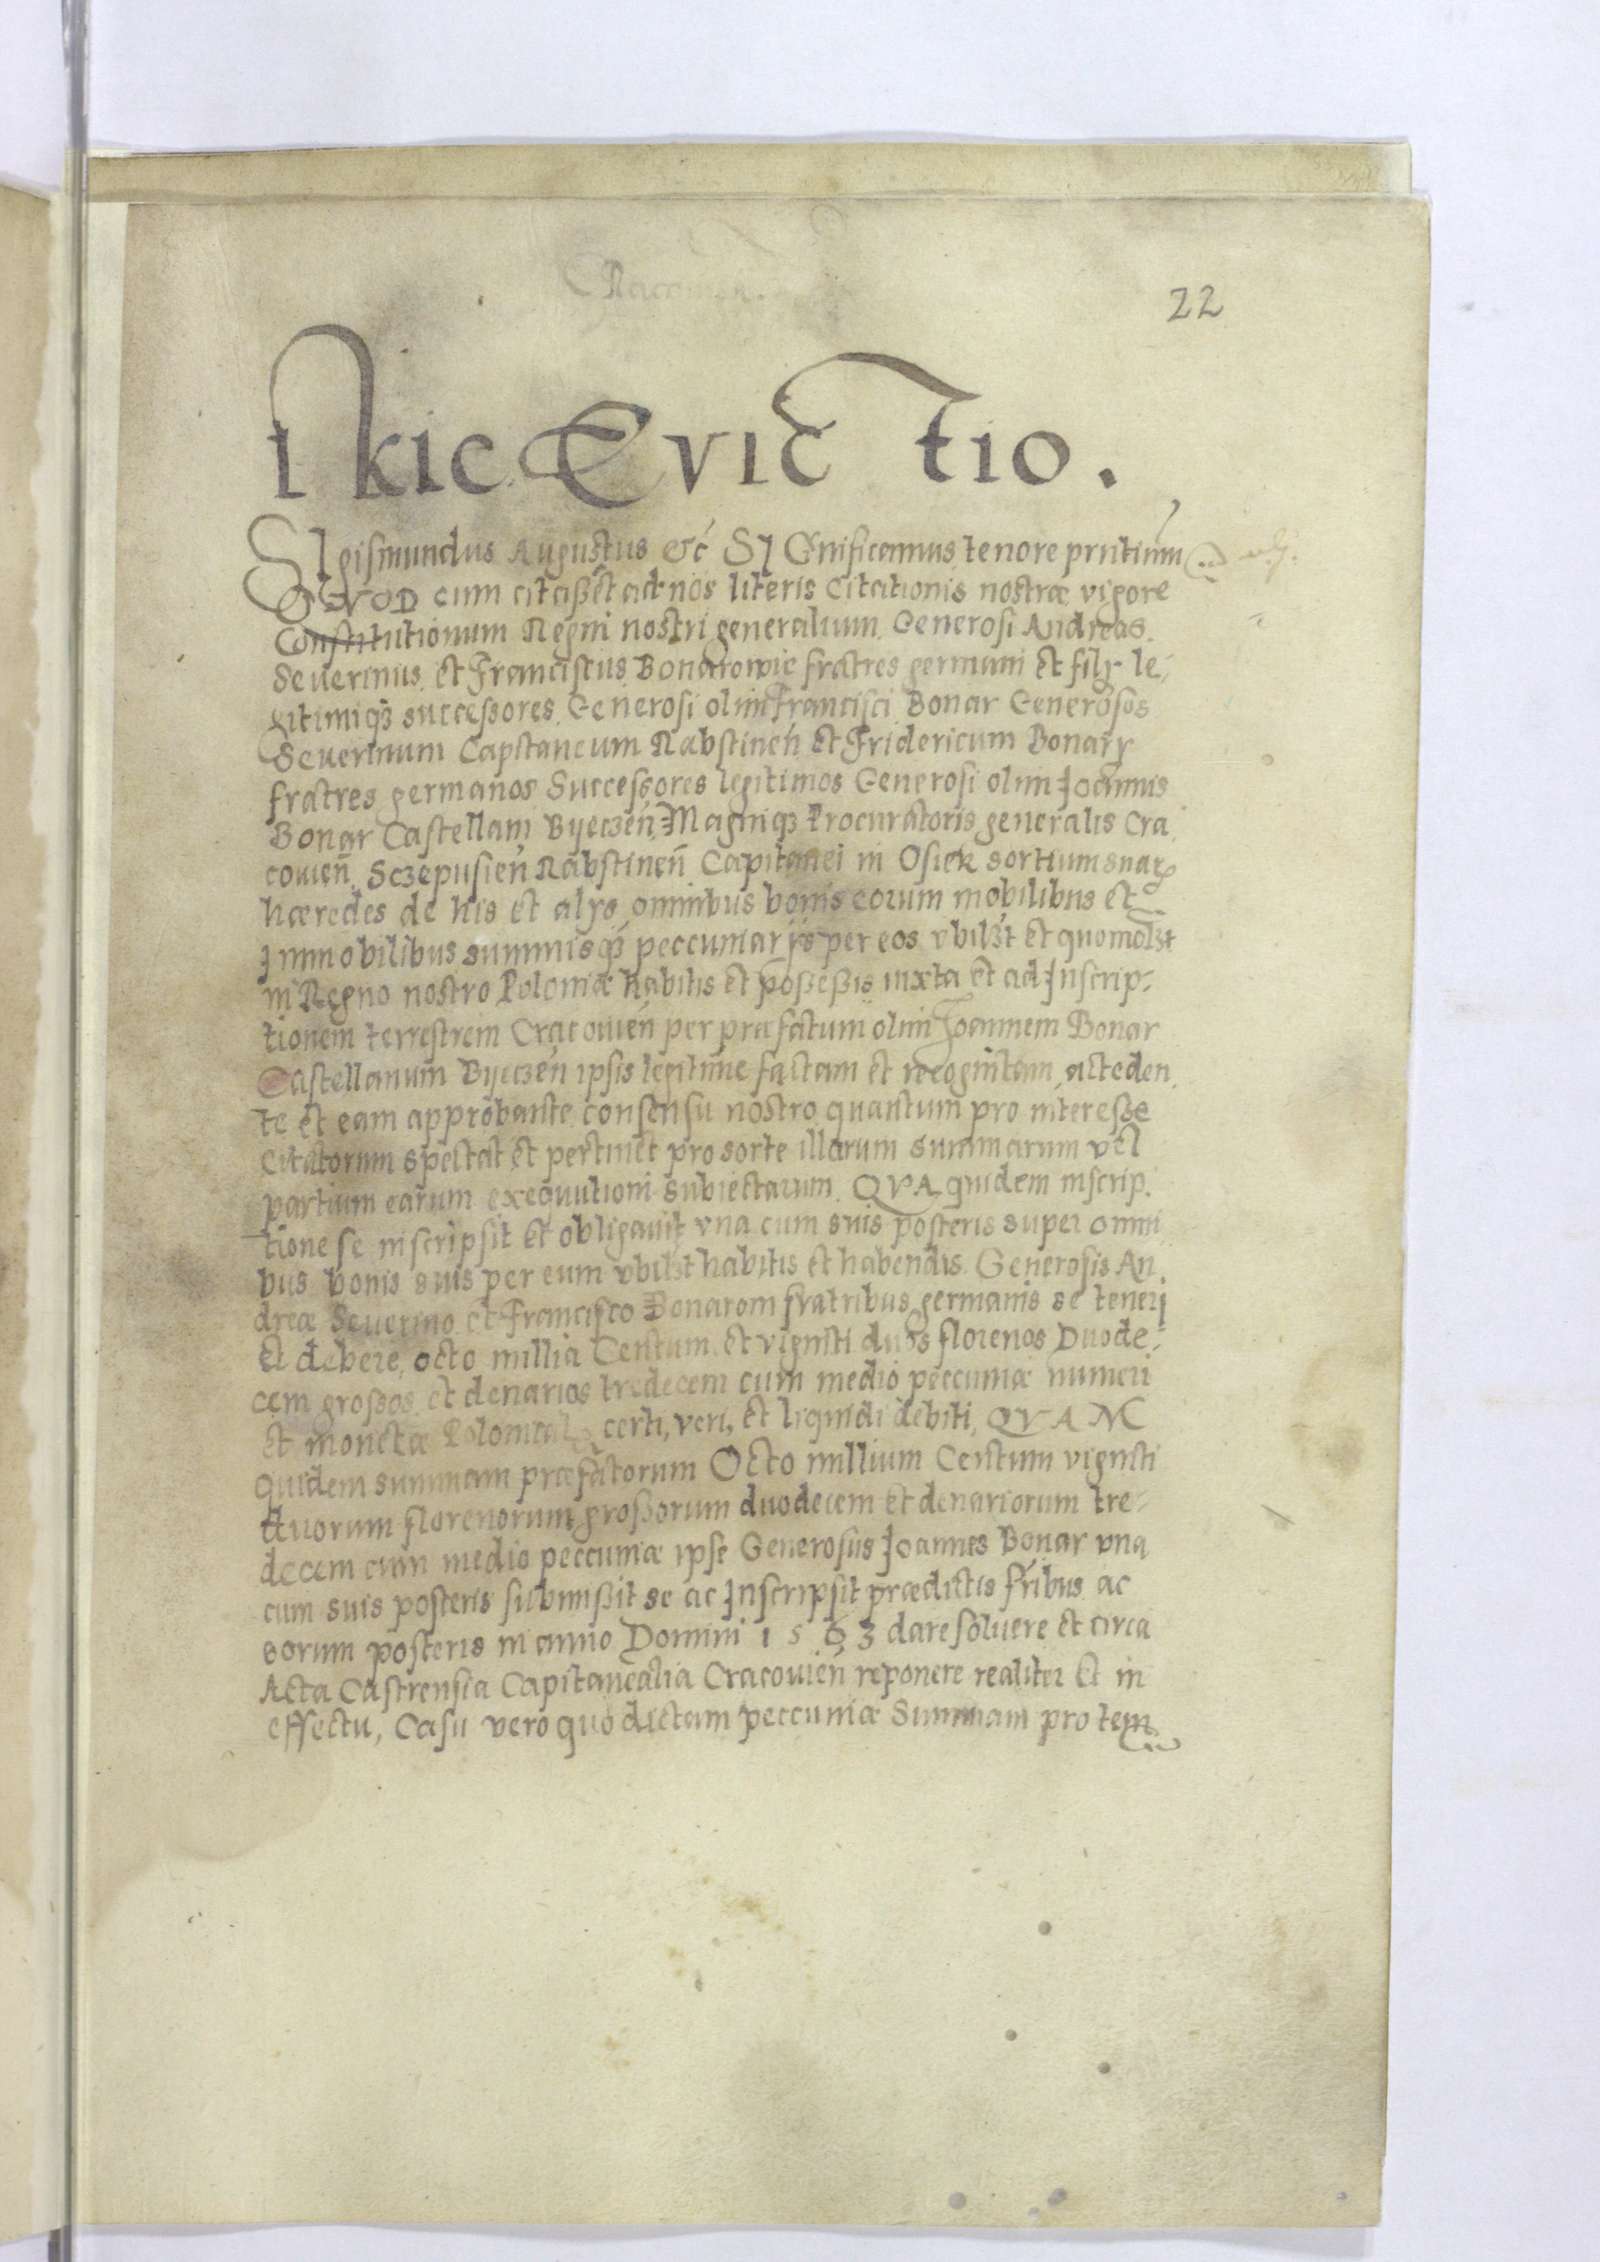 22
kic Evictio.
Sigismundus Augustus etc Significamus tenore prntium
QWOD cum citaßet ad nos literis Citationis nostræ vigore
Constitutionum Regni nostri generalium. Generosi Andreas.
Seuerinus et Franciscus Bonarowie fratres germani et filij le-
gitimiq3 successores Generosi olim Francisci Bonar Generosos
Seuerinum Capitaneum Rabstinen et Fridericum Bonary
fratres germanos Successores legitimos Generosi olim Joannis
Bonar Castellani Byeczen, Magniq3 Procuratoris generalis Cra
couien Sczepusien Rabstinen Capitanei in Osiek sortium suar
hæredes de his et alijs omnibus bonis eorum mobilibus et
Immobilibus summisq3 peccuniarijs per eos vbil3t et quomol3t
in Regno nostro Poloniæ habitis et poßeßis iuxta et ad Inscrip-
tionem terrestrem Cracouien per præfatum olim Joannem Bonar
Castellanum Byeczen ipsis legitime factam et recognitam, acceden
te et eam approbante consensu nostro quantum pro intereße
Citatorum spectat et pertinet pro sorte illarum summarum vel
partium earum exequutioni subiectarum. QVA quidem inscrip.
tione se inscripsit et obligauit vna cum suis posteris super omni
bus bonis suis per eum vbil3t habitis et habendis Generosis An
dreæ Seuerino et Francisco Bonarom fratribus germanis se teneri
et debere, octo millia Centum et viginti duos florenos Duode-
cem großos et denarios tredecem cum medio peccuniæ numeri
et monetæ Polonical certi, veri, et liquidi debiti, QVAM
quidem summam præfatorum Octo millium Centum viginti
duorum florenorum großorum duodecem et denariorum tre-
decem cum medio peccuniæ ipse Generosus Joannes Bonar vna
cum suis posteris submißit se ac Inscripsit prædictis fribus ac
eorum posteris in anno Domini 1563 dare soluere et circa
Acta Castrensia Capitanealia Cracouien reponere realiter et in
effectu, Casu vero quo dictam peccuniæ Summam pro tem